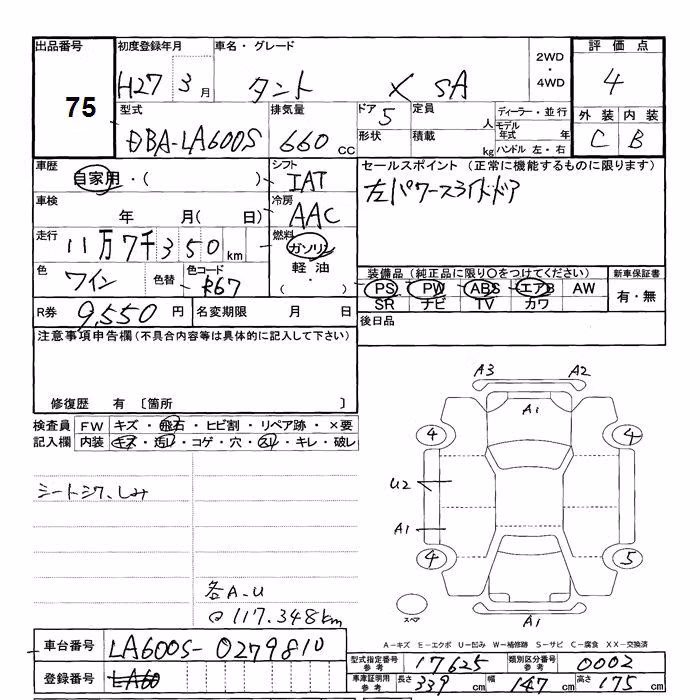 出品番号 初度登録年月 車名・グレード 2WD・4WD 評価点
75 H27 3月 タント X SA 4
型式 排気量 ドア 定員 ディーラー・並行 外装 内装
DBA-LA600S 660cc 5 人 モデル年式 年 C B
形状 積載 kg ハンドル 左・右
車歴 自家用・( ) シフト IAT セールスポイント (正常に機能するものに限ります)
左パワースライドドア
車検 年 月( 日) 冷房 AAC
走行 11万7千350km 燃料 ガソリン・軽油・( )
色 ワイン 色替 色コード R67 装備品 (純正品に限り○をつけてください) 新車保証書
PS PW ABS エアB AW 有・無
SR ナビ TV カワ
R券 9,550円 名変期限 月 日 後日品
注意事項申告欄(不具合内容等は具体的に記入して下さい)
修復歴 有 〔箇所 〕
検査員記入欄 FW キズ・飛石・ヒビ割・リペア跡・×要
内装 キズ・汚レ・コゲ・穴・スレ・キレ・破レ
A3 A2
A1
4 4
シートシワ、しみ
U2
A1
4 5
各A.U
117.348km
スペア
A1
A-キズ E-エクボ U-凹み W-補修跡 S-サビ C-腐食 XX-交換済
車台番号 LA600S-0279810
型式指定番号 参考 17625 類別区分番号 参考 0002
登録番号 LA60
車庫証明用 参考 長さ 339cm 幅 147cm 高さ 175cm